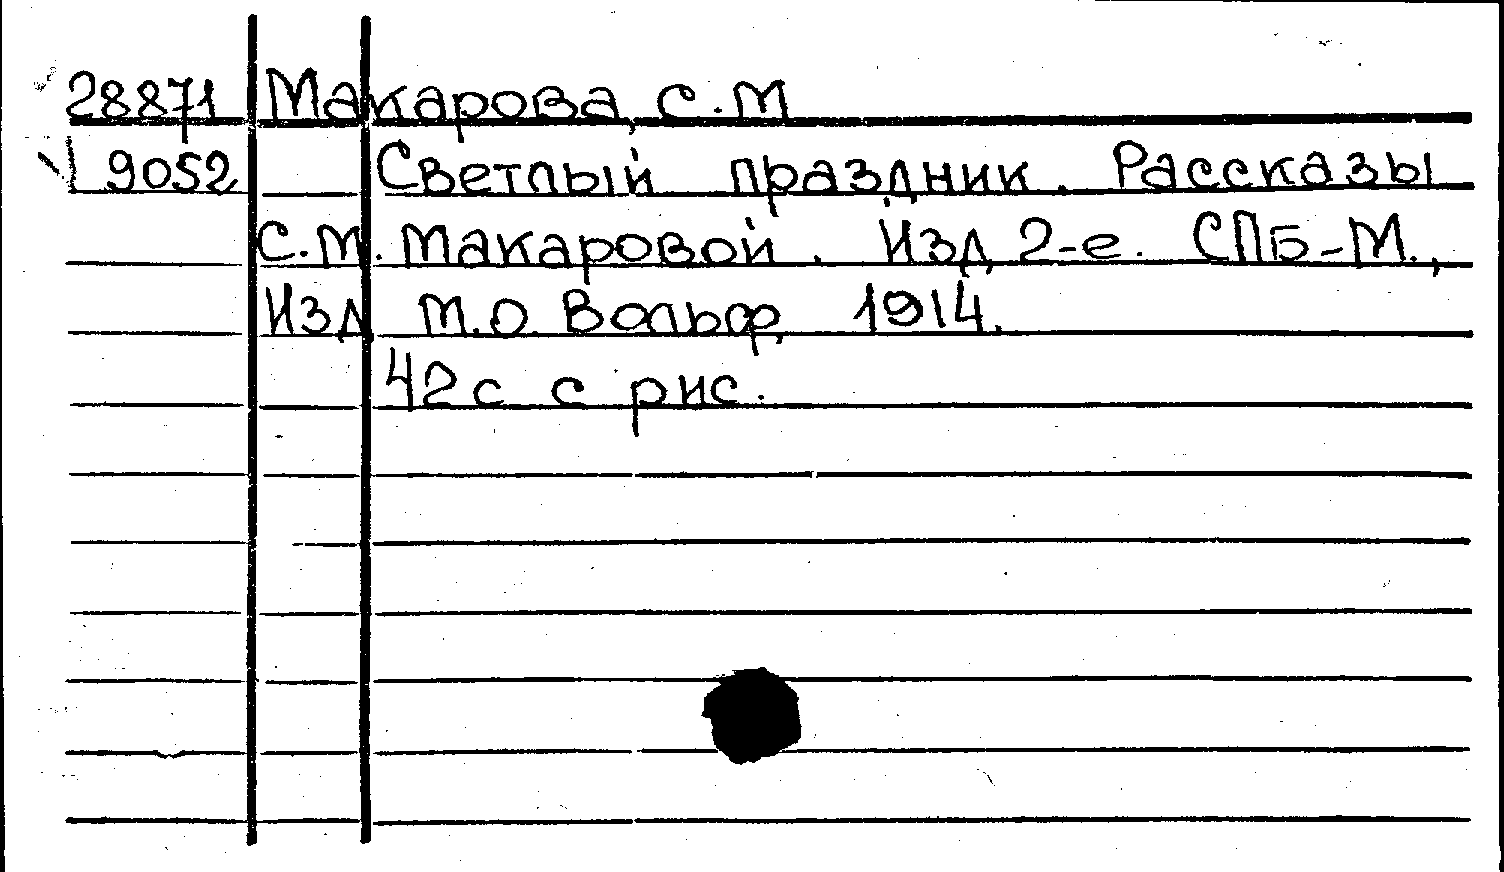 28871 Макарова, С.М
9052 Светлый праздник. Рассказы
С.М. Макаровой. Изд 2-е. СПБ-М.,
Изд М.О. Вольф, 1914.
42с с рис.